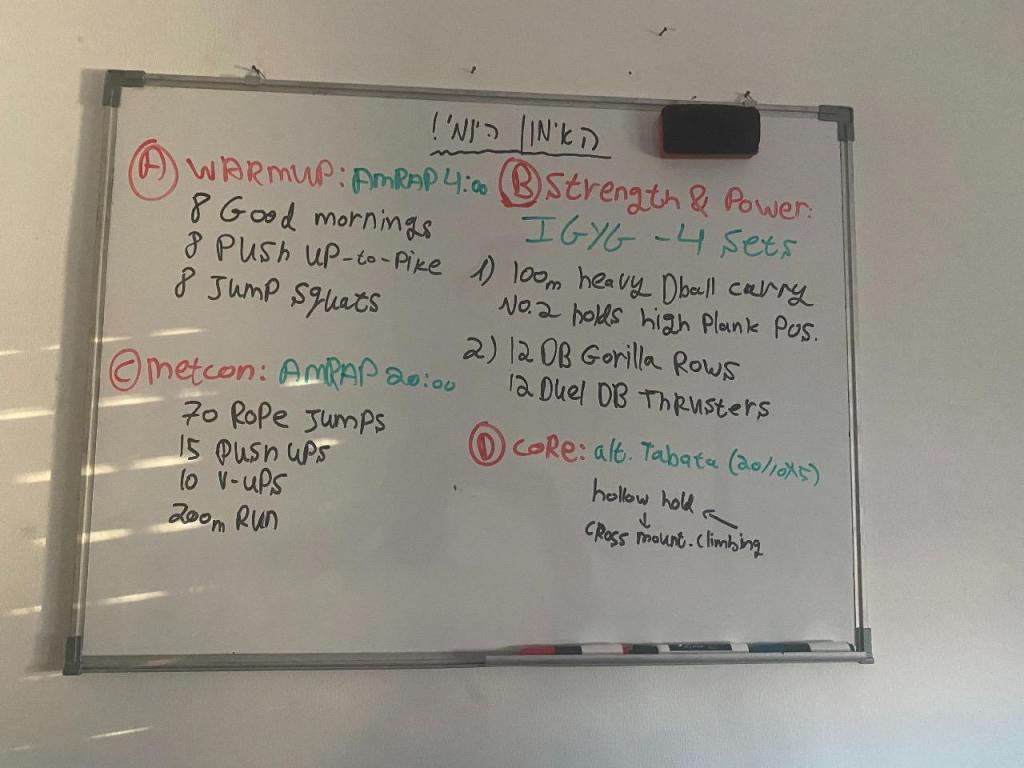 האימון היומי!
A WARMUP: AMRAP 4:00
8 Good mornings
8 PUSH UP-to-Pike
8 Jump Squats
B Strength & Power:
IGYG - 4 Sets
1) 100m heavy Dball carry
No.2 holds high Plank Pos.
2) 12 DB Gorilla Rows
12 Duel DB Thrusters
C metcon: AMRAP 20:00
70 Rope Jumps
15 Push ups
10 V-ups
200m Run
D CORE: alt. Tabata (20/10X5)
hollow hold
cross mount. climbing